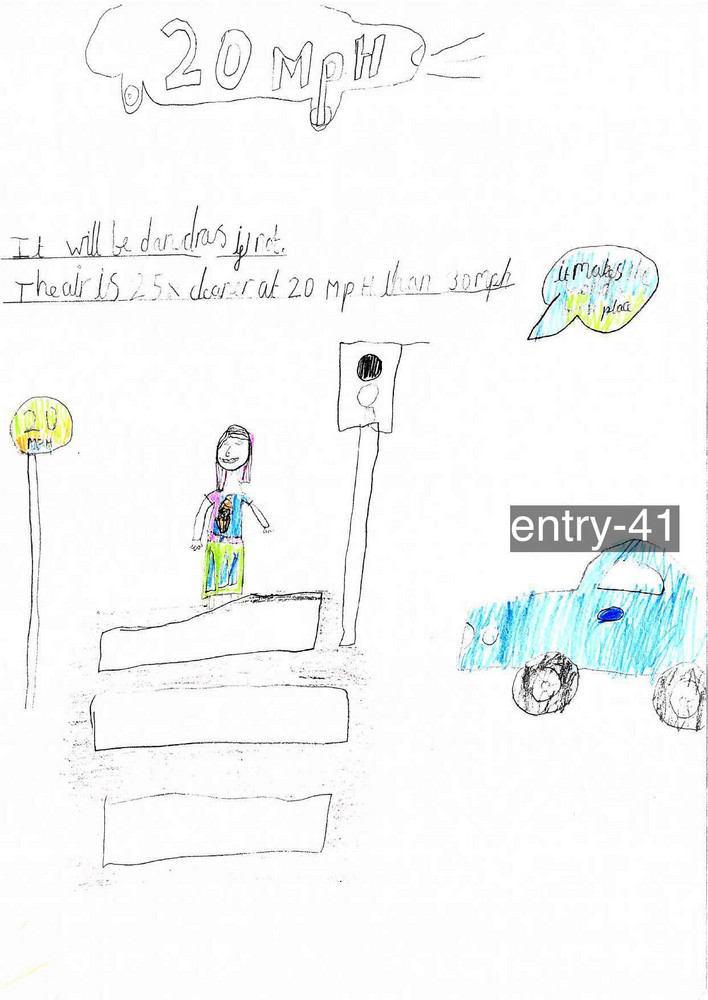 20 MpH
It will be danudras if not.
The air is 25x cleaner at 20 MpH than 30mph
it makes the
place
20
MPH
entry-41